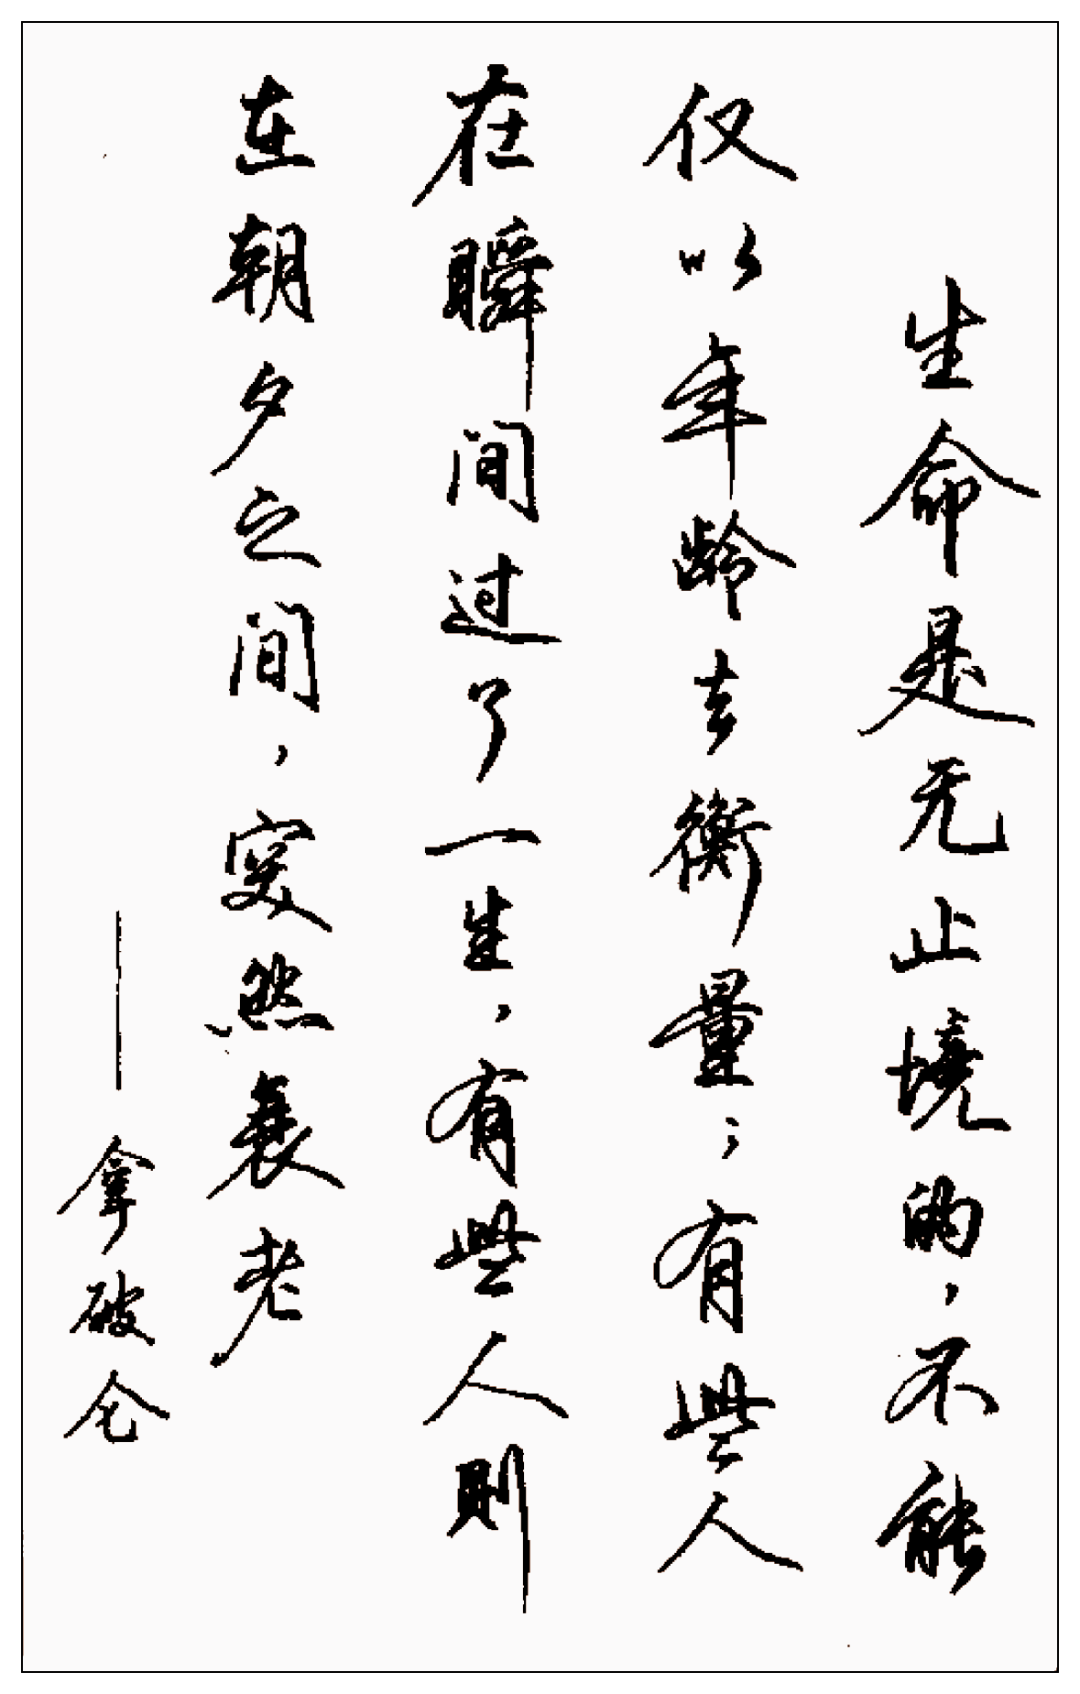 生命是无止境的，不能
仅以年龄去衡量；有些人
在瞬间过了一生，有些人则
在朝夕之间，突然衰老
——拿破仑